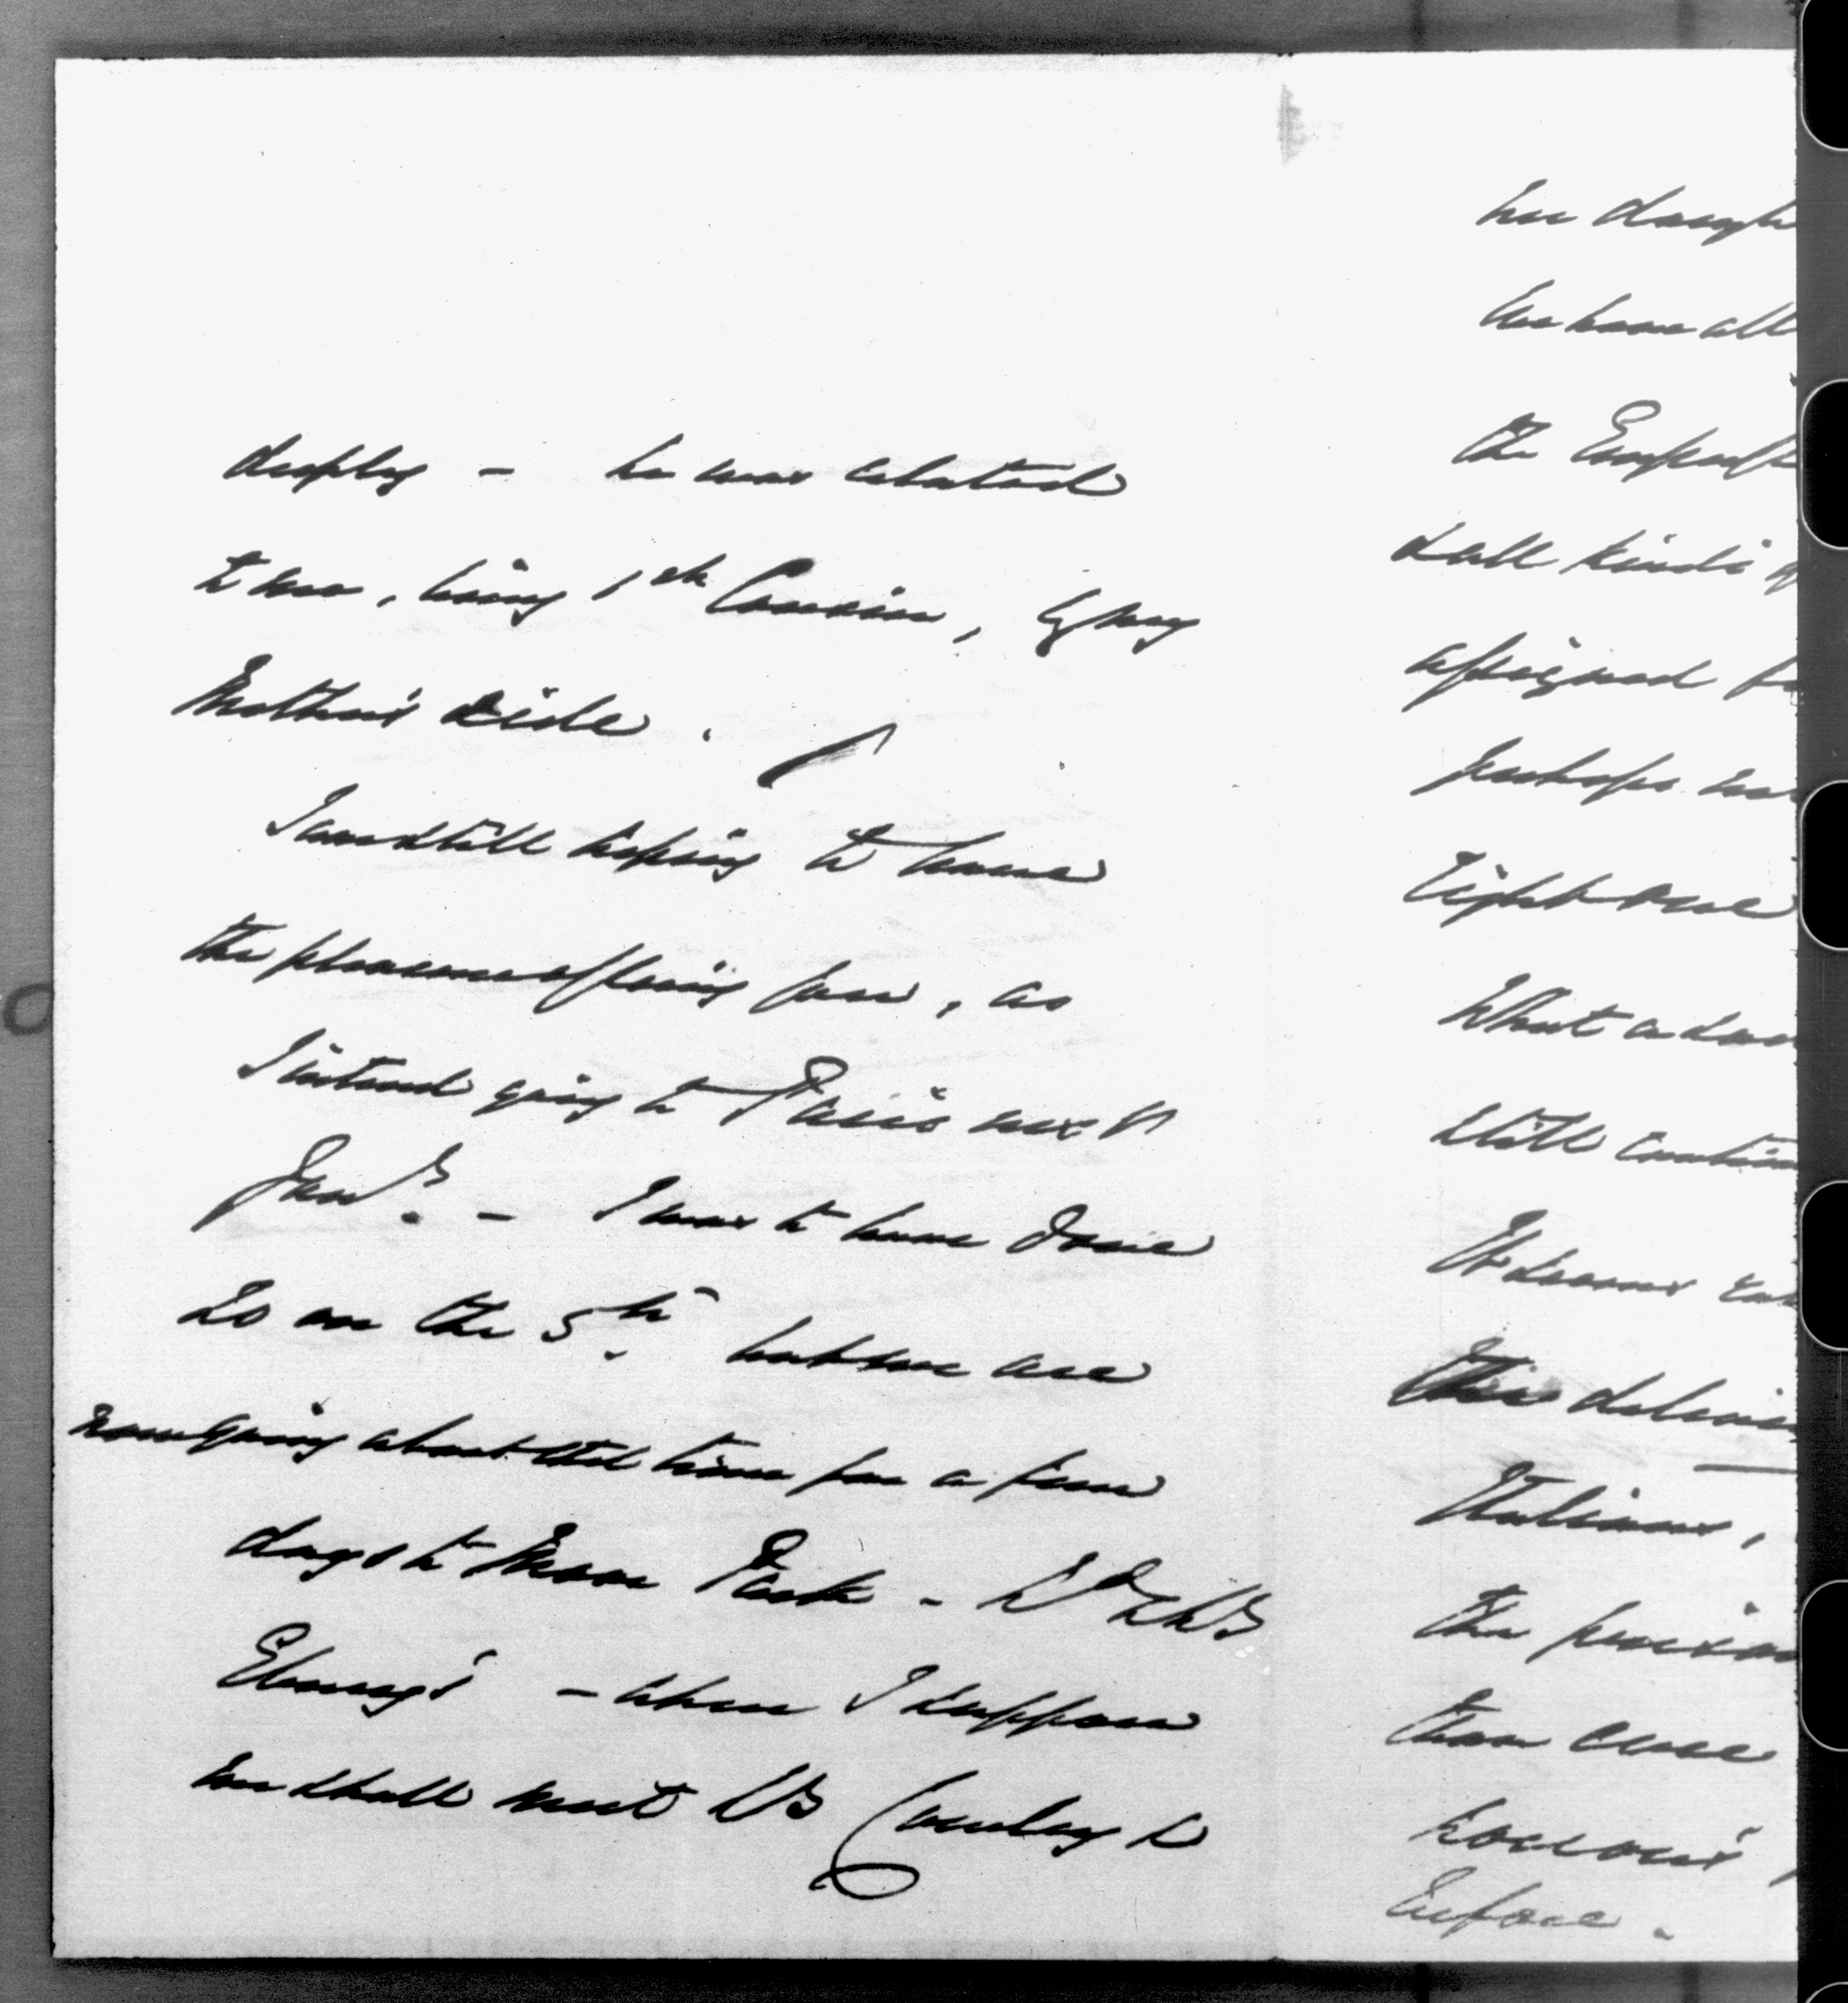 deeply - he was related
to me, being 1st Cousin, by my
Mother's side.
I am still hoping to have
the pleasure of seeing you, as
I intend going to Paris next
Jany. - I was to have done
so on the 5th. but we are
now going about that time for a few
days to Moor Park - Ld
Ebury's - where I suppose
we shall meet Ly Cowley &
her daugh
We have all
the
dull kinds of
assigned for
perhaps
right one
What a
still contin
It seems
this
Italians,
the
than ever
horrors
before.